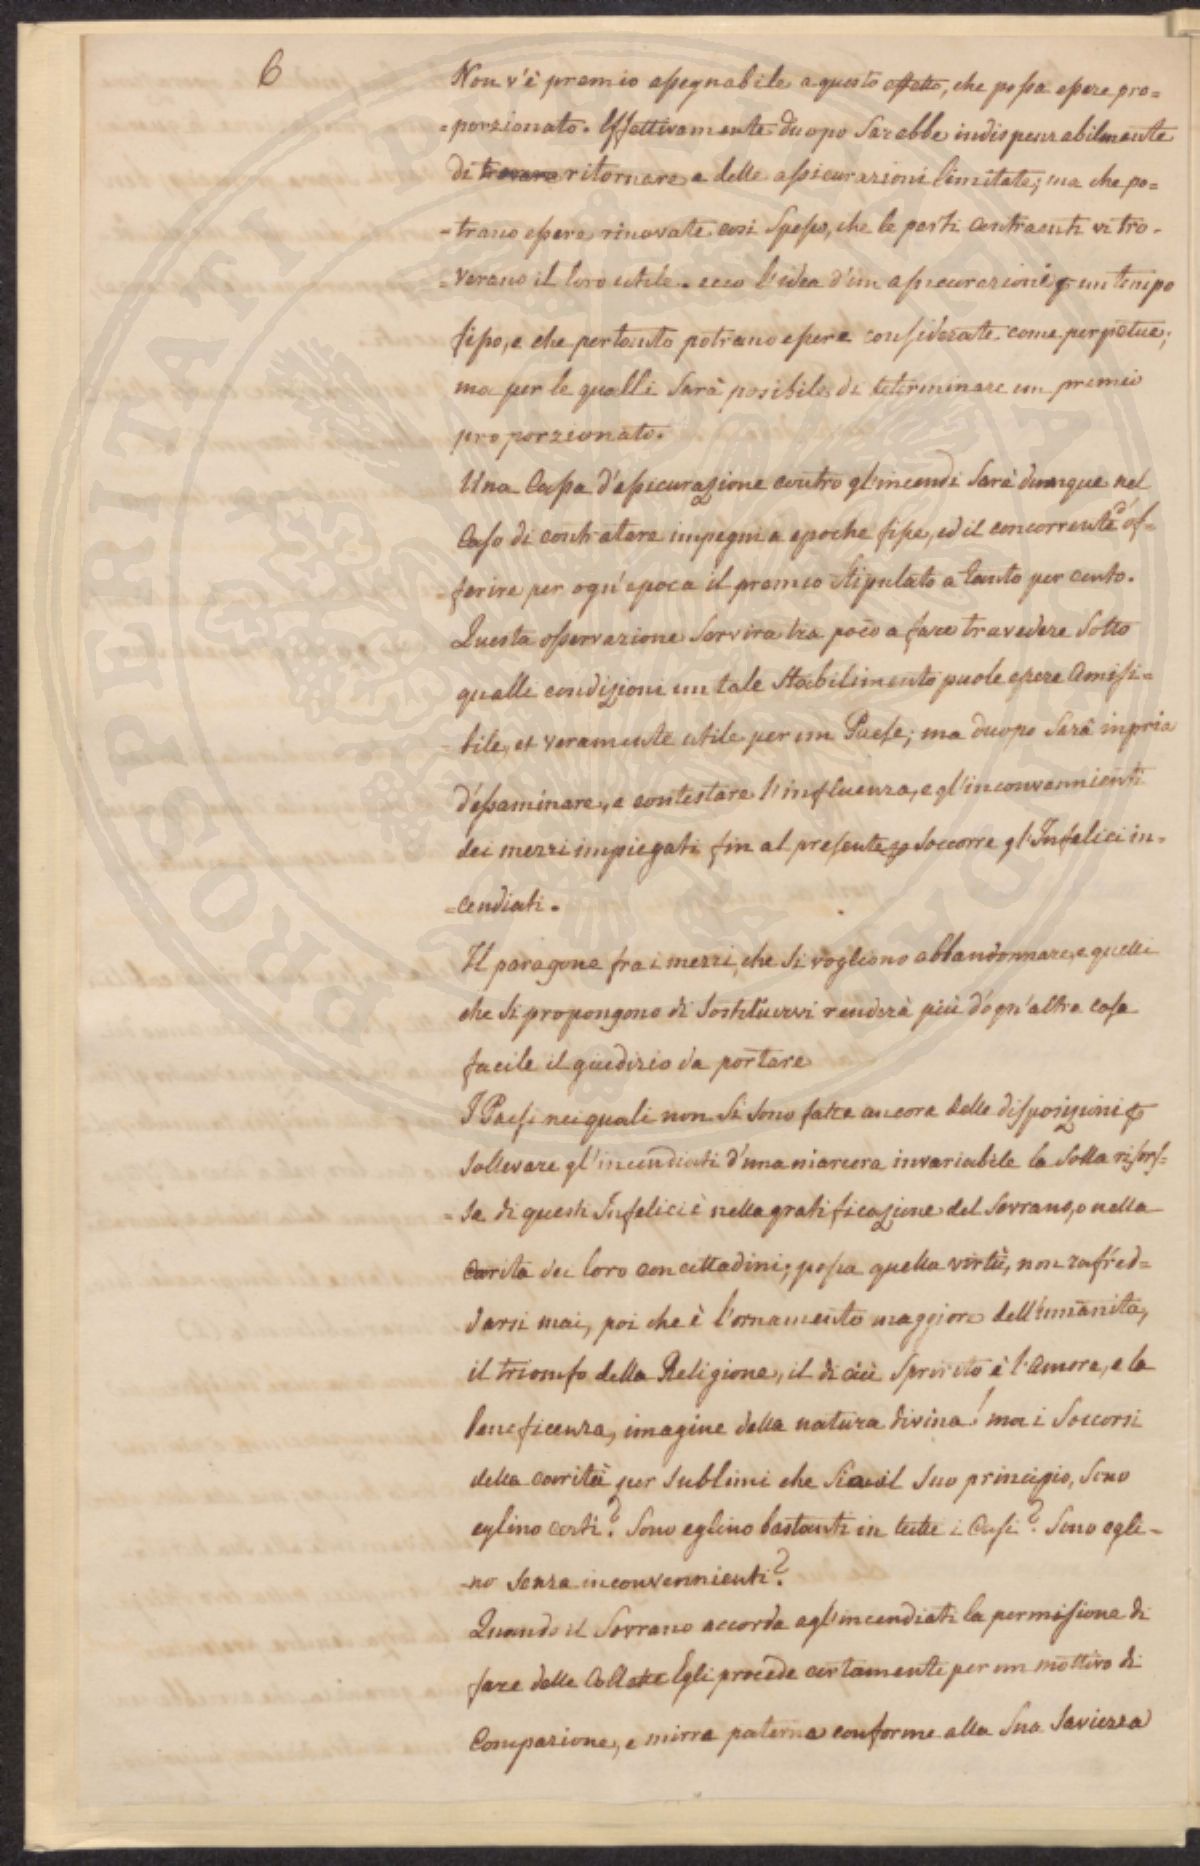 6
Non v'è premio assegnabile a questo effetto, che possa essere pro=
=porzionato. Effettivamente duopo sarebbe indispensabilmente
di trovare ritornare a delle assicurazioni limitate; ma che po=
=trano essere rinovate così spesso, che le parti contraenti vi tro=
=verano il loro utile. ecco l'idea d'un assicurazione p un tempo
fisso, e che pertanto potrano essere considerate come perpetue;
ma per le qualli sarà posibile di determinare un premio
proporzionato.
Una Cassa d'assicurazione contro gl'incendi sarà dunque nel
Caso di contratare impegni a epoche fisse, ed il concorrente d'of=
=ferire per ogn'epoca il premio stipulato a tanto per cento.
Questa osservazione servira tra poco a fare travedere sotto
qualli condizioni un tale stabilimento puole essere amisi=
=bile, et veramente utile per un Paese; ma duopo sarà in pria
d'essaminare, e contestare l'influenza, e gl'inconvennienti
dei mezzi impiegati fin al presente p soccorre gl'Infelici in=
=cendiati.
Il paragone fra i mezzi, che si vogliono abbandonnare, e quelli
che si propongono di sostituirvi renderà più d'ogn'altra cosa
facile il giudizio da portare
I Paesi nei quali non si sono fatte ancora delle disposizioni p
sollevare gl'incendiati d'una maniera invariabile la solla risors=
=sa di questi Infelici è nella gratificazione del Sovrano, o nella
carità dei loro concittadini; possa quella virtù, non rafred=
darsi mai, poi che è l'ornamento maggiore dell'umanita,
il triomfo della Religione, il di cui spirito è l'amore, e la
beneficenza, imagine della natura divina! ma i soccorsi
della carrità per sublimi che sia il suo principio, sono
eglino certi? sono eglino bastanti in tutti i Casi? sono egli=
=no senza inconvennienti?
Quando il Sovrano accorda agl'incendiati la permissione di
fare delle Collette Egli procede certamente per un mottivo di
Compazione, e mirra paterna conforme alla sua saviezza
PROSPERITATI PUBLICAE AUGENDAE